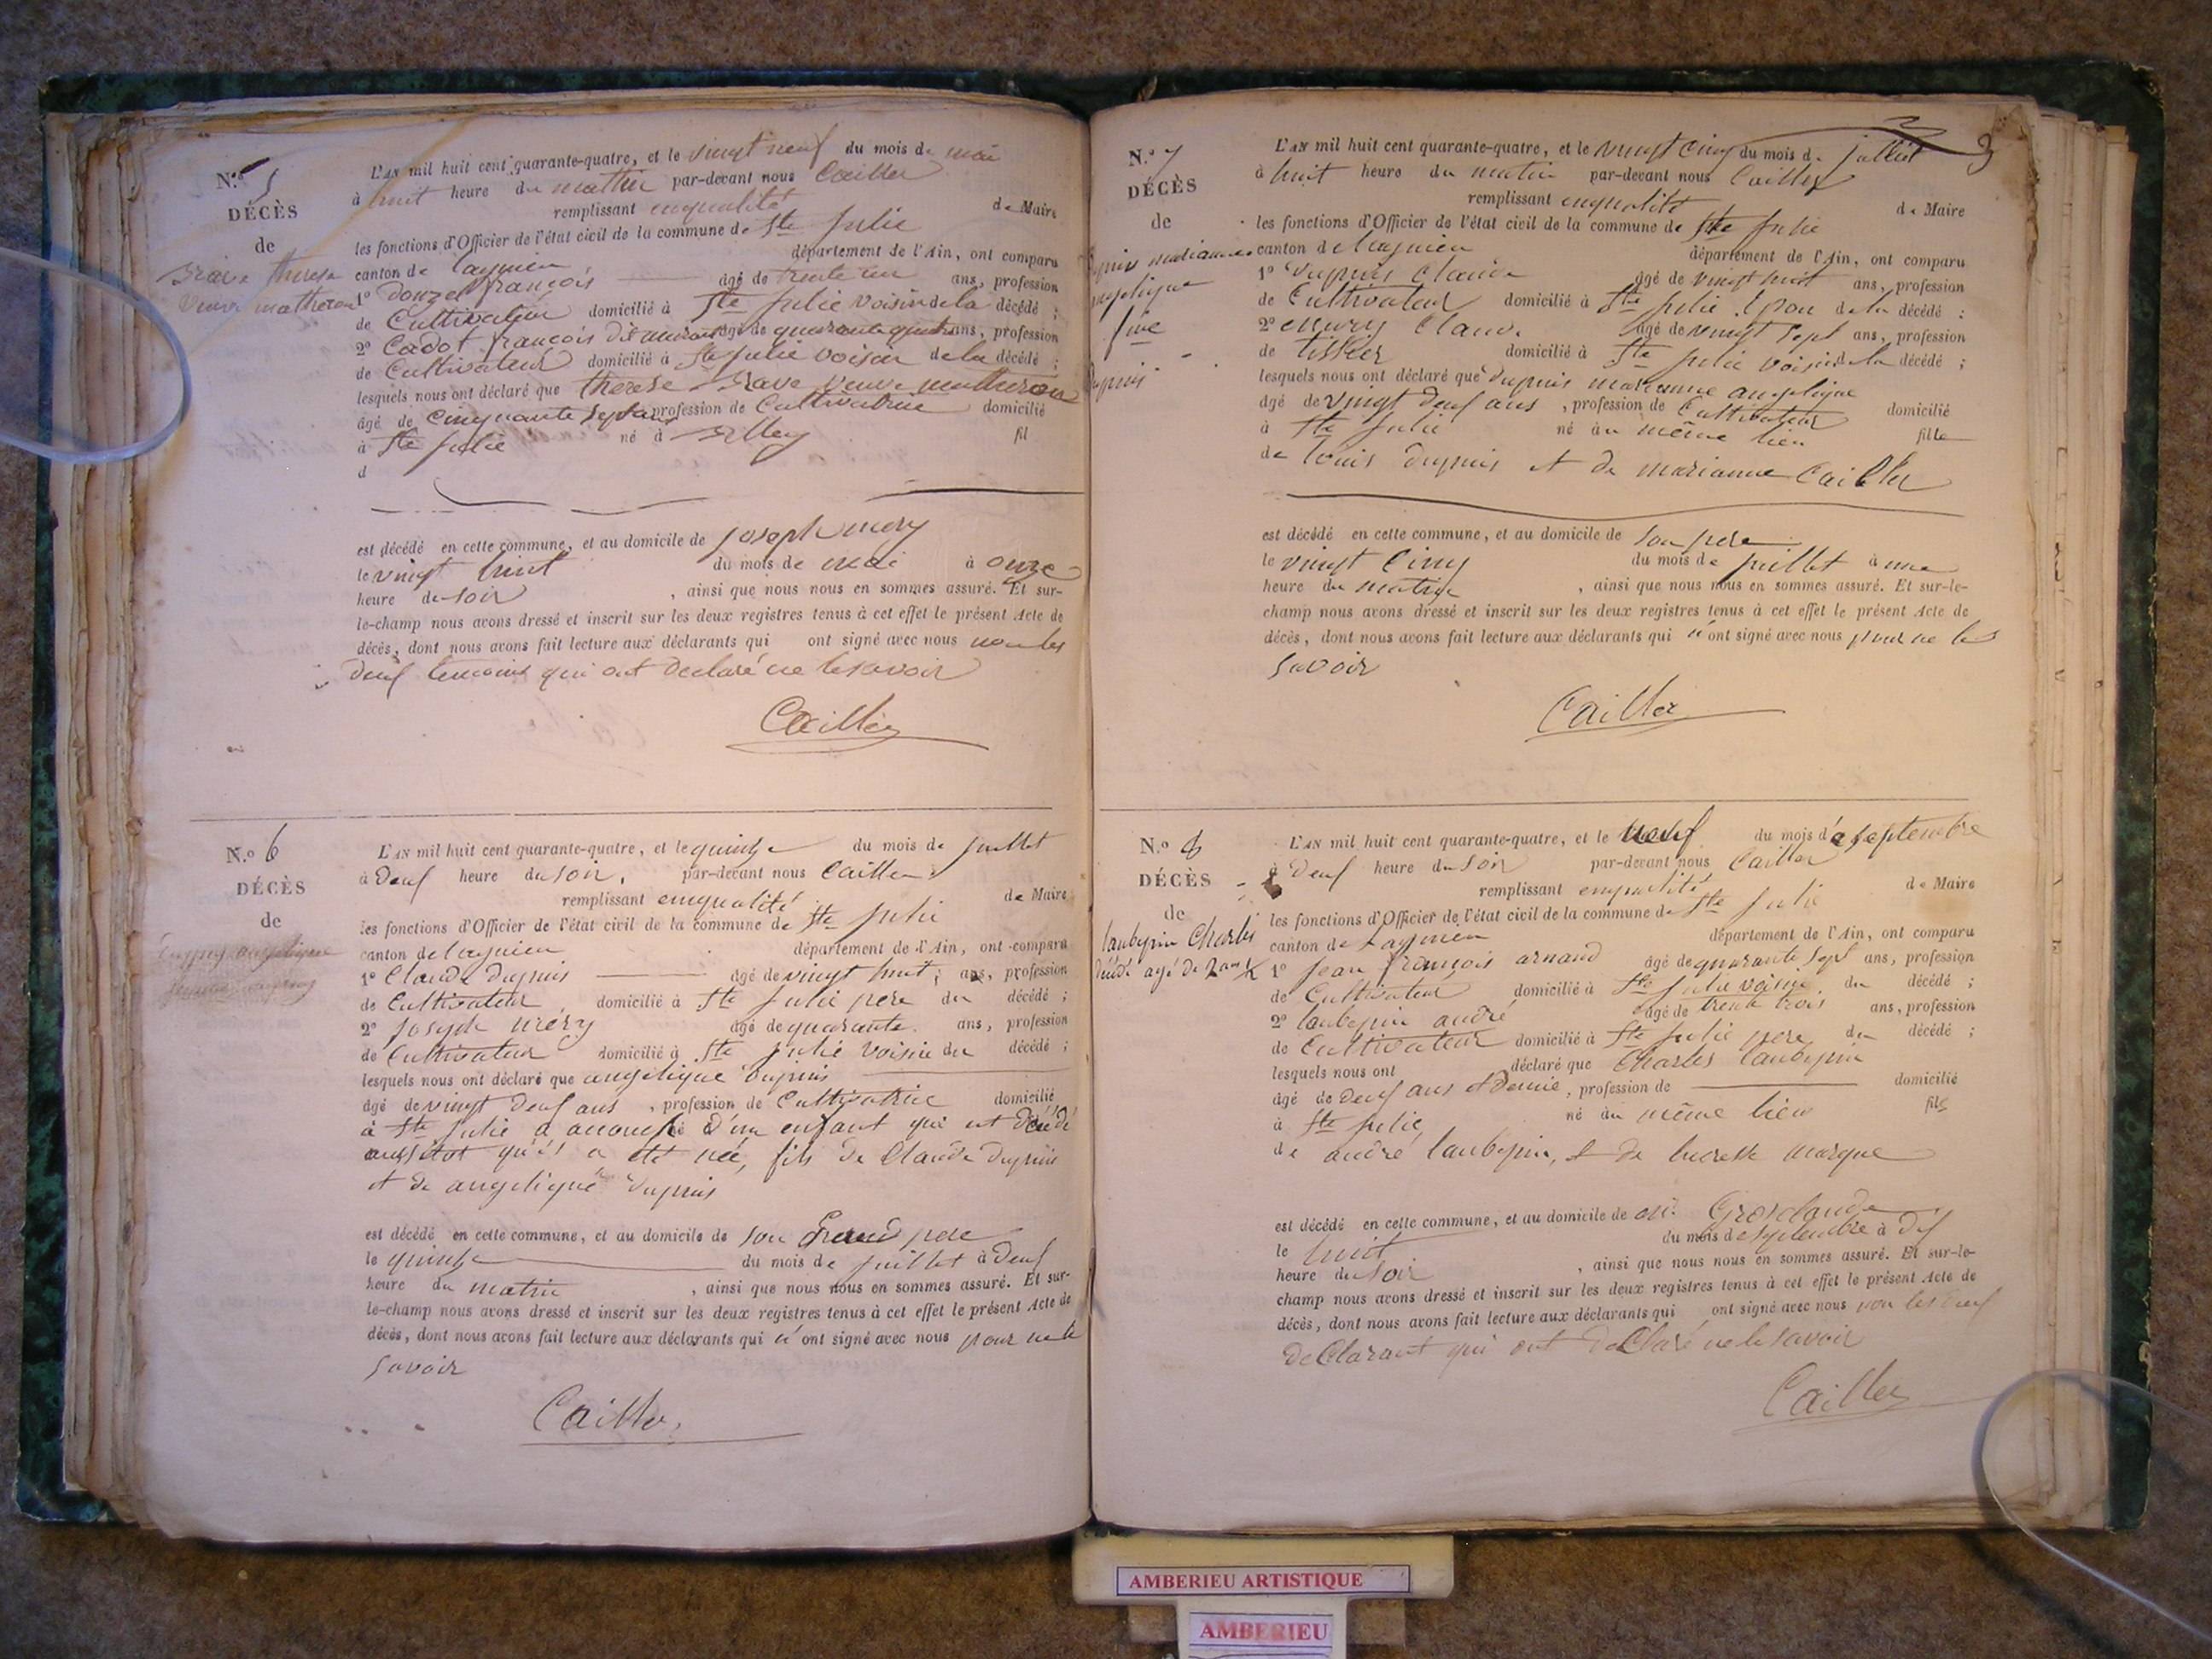 N.o 5
DÉCÈS
de
Brave therese
veuve matheron
L'AN mil huit cent quarante-quatre, et le vingt neuf du mois de mai
à huit heure du mattin par-devant nous Cailler
remplissant enqualité de Maire
les fonctions d'Officier de l'état civil de la commune de Ste Julie
canton de lagnieu département de l'Ain, ont comparu
1o Douzel françois âgé de trente un ans, profession
de Cultivateur domicilié à Ste Julie voisin de la décédé ;
2o Cadot françois dit âgé de quarante quatre ans, profession
de Cultivateur domicilié à Ste Julie voisin de la décédé ;
lesquels nous ont déclaré que therese Brave veuve matheron
âgé de cinquante sept ans profession de Cultivatrice domicilié
à Ste Julie né à fil
d
est décédé en cette commune, et au domicile de joseph mery
le vingt huit du mois de mai à onze
heure du soir , ainsi que nous nous en sommes assuré. Et sur-
le-champ nous avons dressé et inscrit sur les deux registres tenus à cet effet le présent Acte de
décès, dont nous avons fait lecture aux déclarants qui ont signé avec nous non les
deux temoins qui ont declaré ne le savoir
Cailler
N.o 6
DÉCÈS
de
L'AN mil huit cent quarante-quatre, et le quinze du mois de juillet
à deux heure du soir, par-devant nous Cailler
remplissant enqualité de Maire
les fonctions d'Officier de l'état civil de la commune de Ste Julie
canton de lagnieu département de l'Ain, ont comparu
1o Claude Dupuis âgé de vingt huit ans, profession
de Cultivateur domicilié à Ste Julie pere du décédé ;
2o Joseph mery âgé de quarante ans, profession
de Cultivateur domicilié à Ste Julie voisin du décédé ;
lesquels nous ont déclaré que angelique Dupuis
âgé de vingt deux ans , profession de Cultivatrice domicilié
à Ste Julie a accouché d'un enfant qui est décédé
aussitot qu'il a eté née, fils de Claude Dupuis
et de angelique Dupuis
est décédé en cette commune, et au domicile de son Grand pere
le quinze du mois de juillet à deux
heure du matin , ainsi que nous nous en sommes assuré. Et sur-
le-champ nous avons dressé et inscrit sur les deux registres tenus à cet effet le présent Acte de
décès, dont nous avons fait lecture aux déclarants qui n'ont signé avec nous pour ne le
savoir
Cailler
N.o 7
DÉCÈS
de
Dupuis marianne
angelique
Dupuis
L'AN mil huit cent quarante-quatre, et le vingt cinq du mois de juillet
3
à huit heure du matin par-devant nous Cailler
remplissant enqualité de Maire
les fonctions d'Officier de l'état civil de la commune de Ste Julie
canton de lagnieu département de l'Ain, ont comparu
1o Dupuis Claude âgé de vingt huit ans, profession
de Cultivateur domicilié à Ste Julie Epou de la décédé ;
2o mery Claude âgé de vingt sept ans, profession
de tissier domicilié à Ste Julie voisin de la décédé ;
lesquels nous ont déclaré que Dupuis marianne angelique
âgé de vingt deux ans , profession de Cultivateur domicilié
à Ste Julie né au même lieu fille
de louis Dupuis et de marianne Cailler
est décédé en cette commune, et au domicile de son pere
le vingt cinq du mois de juillet à une
heure du matin , ainsi que nous nous en sommes assuré. Et sur-le-
champ nous avons dressé et inscrit sur les deux registres tenus à cet effet le présent Acte de
décès, dont nous avons fait lecture aux déclarants qui n'ont signé avec nous pour ne le
savoir
Cailler
N.o 8
DÉCÈS
de
laubepin Charles
décédé agé de 2 ans ½
L'AN mil huit cent quarante-quatre, et le neuf du mois de septembre
à deux heure du soir par-devant nous Cailler
remplissant enqualité de Maire
les fonctions d'Officier de l'état civil de la commune de Ste Julie
canton de Lagnieu département de l'Ain, ont comparu
1o jean françois arnaud âgé de quarante sept ans, profession
de Cultivateur domicilié à Ste Julie voisin du décédé ;
2o laubepin andré âgé de trente trois ans, profession
de Cultivateur domicilié à Ste Julie pere du décédé ;
lesquels nous ont déclaré que Charles laubepin
âgé de deux ans et demie , profession de domicilié
à Ste Julie né au même lieu fils
de andré laubepin, et de lucresse marque
est décédé en cette commune, et au domicile de Grosclaude
le huit du mois de septembre à dix
heure du soir , ainsi que nous nous en sommes assuré. Et sur-le-
champ nous avons dressé et inscrit sur les deux registres tenus à cet effet le présent Acte de
décès, dont nous avons fait lecture aux déclarants qui ont signé avec nous non les deux
declarant qui ont declaré ne le savoir
Cailler
AMBERIEU ARTISTIQUE
AMBERIEU